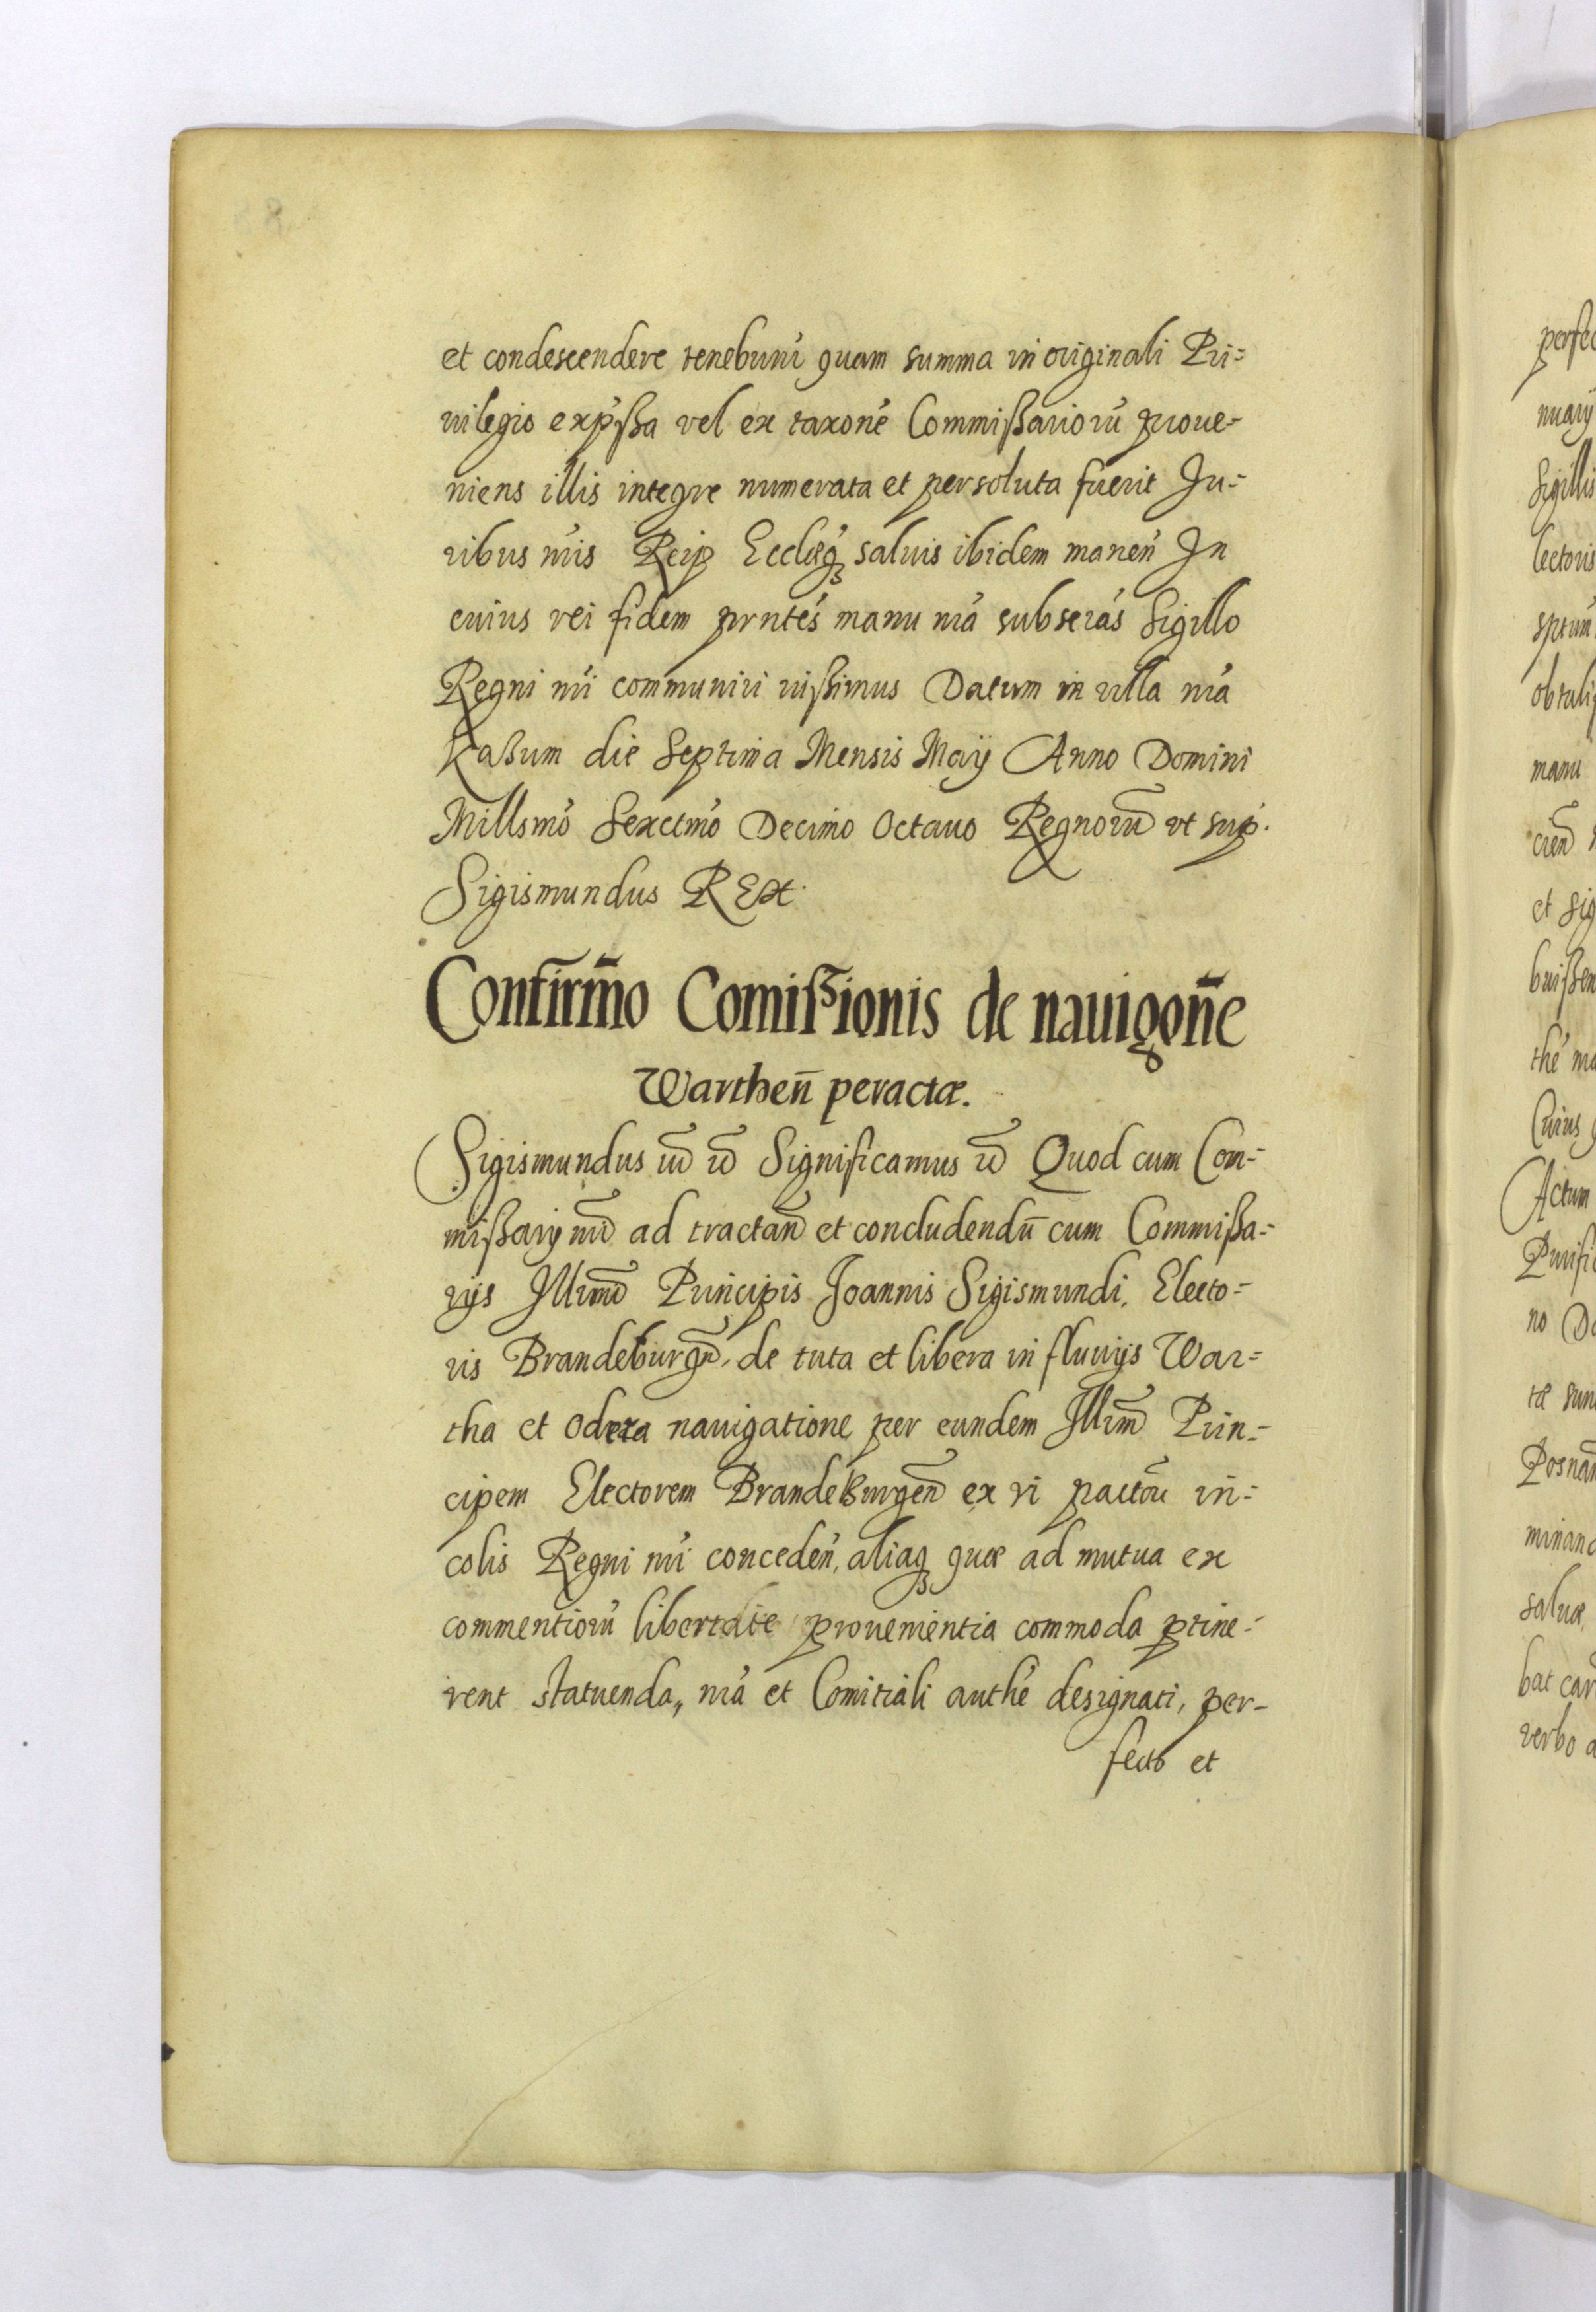 et condescendere tenebunt́ quam summa in originali Pri=
uilegio exṕssa vel ex taxoné Commissariorú proue=
niens illis integre numerata et persoluta fuerit Ju=
ribus nr̃is Reip Eccłæq́ꝫ saluis ibidem maneń In
cuius rei fidem prntés manu nrá subscrás Sigillo
Regni nr̃i communiri iussimus Datum in villa nrá
die Septima Mensis Maij Anno Domini
Millsmó Sexctmó Decimo Octauo Regnorū vt sup.
Sigismundus REX.
Confirm̃o Comissionis de nauigoñe
Warthen̄ peractæ.
Sigismundus Significamus Quod cum Com=
missarij nrĩ ad tractan̄ et concludendū cum Commissa=
rijs Illimĩ Principis Joannis Sigismundi, Electo=
ris Brandeburgn̄, de tuta et libera in fluuijs War=
tha et Odera nauigatione per eundem Illim̄ Prin=
cipem Electorem Brandeburgen̄ ex vi pactorū in=
colis Regni nr̃i conceden̄, aliaqꝫ quæ ad mutua ex
commertiorú libertate prouenientia commoda ptine=
rent statuenda, nrá et Comitiali authé designati, per=
fecto et
perfec
nuarij
Sigillis
lectoris
manu
et sig
Cuius
Actum
no
tæ sun
saluæ
verbo a